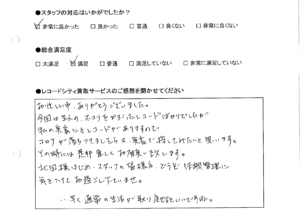 ●スタッフの対応はいかがでしたか?
☑非常に良かった □良かった □普通 □良くない □非常に良くない
●総合満足度
□大満足 ☑満足 □普通 □満足していない □非常に満足していない
●レコードシティ買取サービスのご感想を聞かせてください
お忙しい中、ありがとうございました。
今回は主人の、ホコリをかぶったレコードばかりでしたが
私の実家にもレコードがありますので
コロナが落ちつきましたら 実家で探してみたいと思います。
その時には是非宜しくお願い致します。
はじめ、スタッフの皆様方、どうぞ体調管理に
気をつけてお過ごし下さいませ。
…早く通常の生活が取り戻せるといいですね。